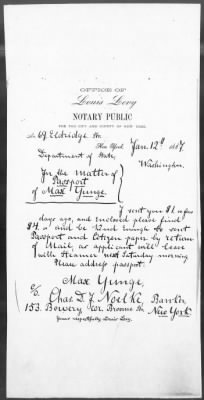 OFFICE OF
Louis Levy
NOTARY PUBLIC
FOR THE CITY AND COUNTY OF NEW YORK.
No 69 Eldridge St.
New York Jan. 12th 1887
Department of State,
Washington.
In the matter of
Passport
of Max Yunge.
I sent you $1 a few
days ago, and enclosed please find
$4. and be kind enough to sent
Passport and Citizen paper by return
of Mail, as applicant will leave
with Steamer next Saturday morning
Please address passport.
Max Yunge,
c/o Chas D. F. Noelke, Banker
153. Bowery cor. Broome St. New York
Yours respectfully Louis Levy.